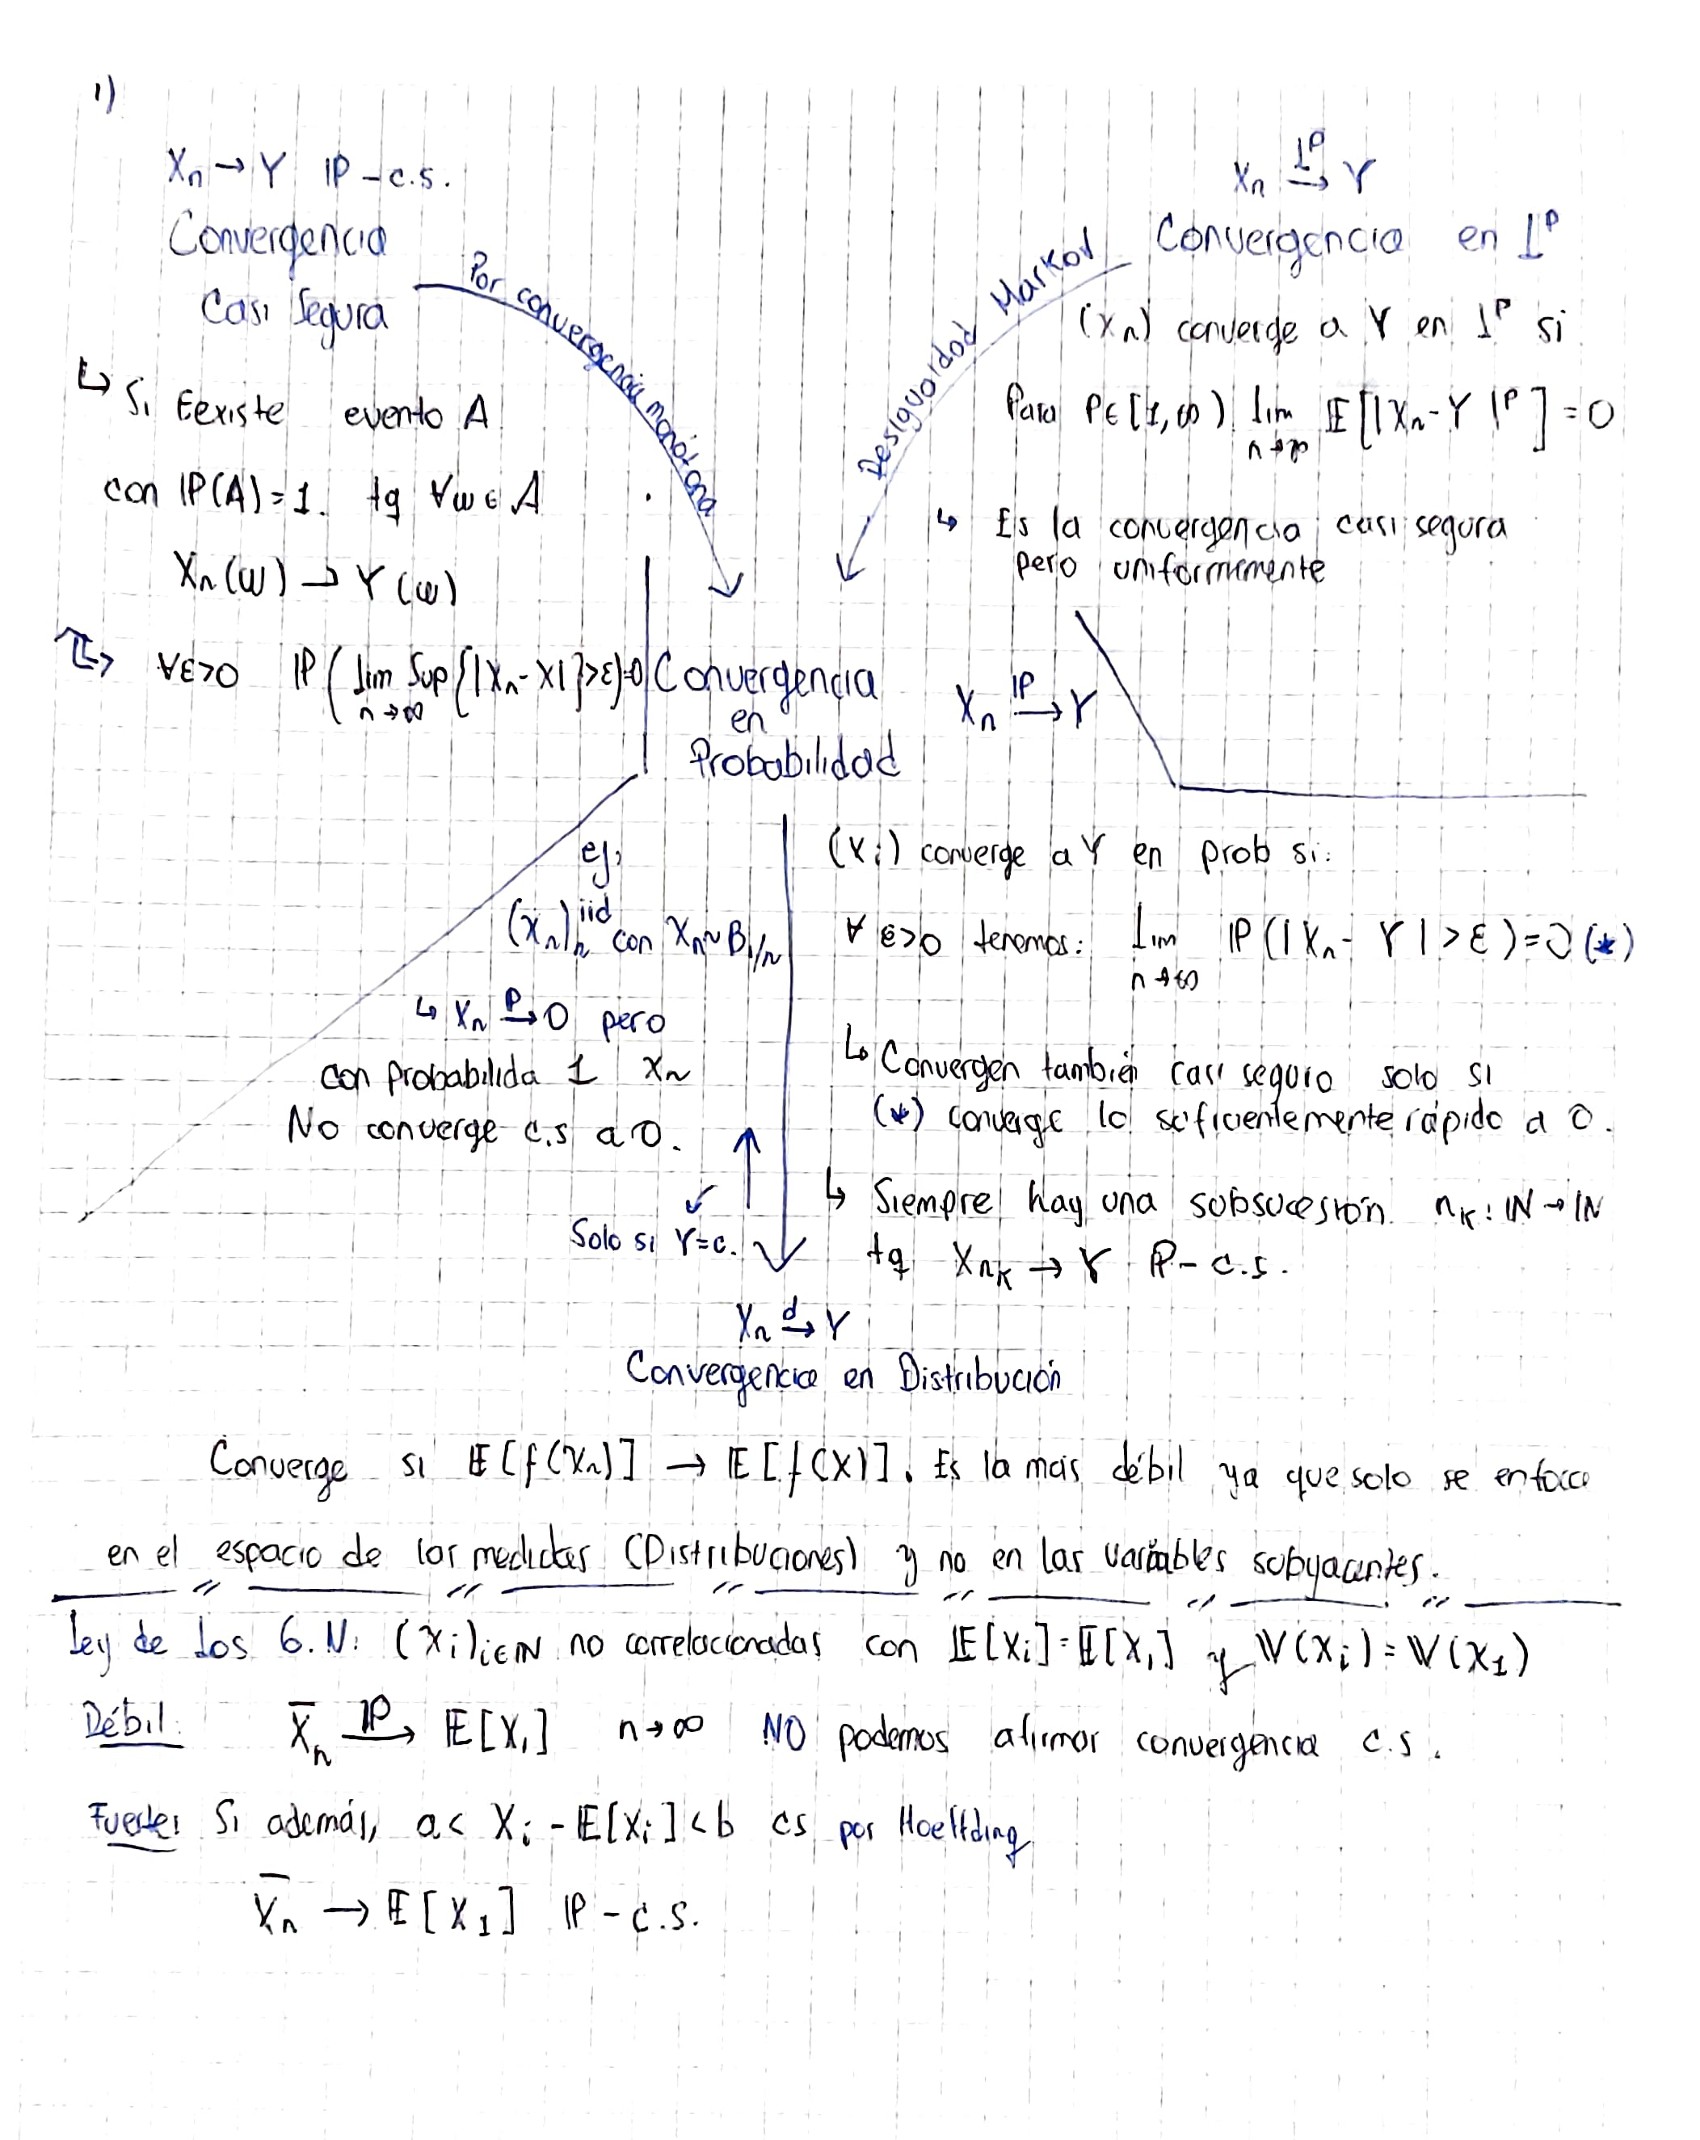 1)
Xₙ → Y ℙ - c.s.
Convergencia
Casi Segura
↳ Si Eexiste evento A
con ℙ(A) = 1. tq ∀ω ∈ A
Xₙ(ω) → Y(ω)
∀ε>0 ℙ( lim Sup {|Xₙ - X|}>ε)=0
n→∞
Por convergencia monótona
Xₙ →^{L^p} Y
Convergencia en L^p
(Xₙ) converge a Y en L^p si
Para P∈[1,∞) lim 𝔼[|Xₙ - Y|^p] = 0
n→∞
↳ Es la convergencia casi segura
pero uniformemente
Desigualdad Markov
Convergencia
en
Probabilidad
Xₙ →^{ℙ} Y
ej:
(Xₙ)ₙ^{iid} con Xₙ ~ B_{1/n}
↳ Xₙ →^{P} 0 pero
con probabilida 1 Xₙ
No converge c.s a 0.
(Xᵢ) converge a Y en prob si:
∀ ε>0 tenemos: Lim ℙ(|Xₙ - Y| > ε) = 0 (*)
n→∞
↳ Convergen también casi seguro solo si
(*) converge lo suficientemente rápido a 0.
↳ Siempre hay una subsucesión n_K : ℕ → ℕ
tq X_{n_K} → Y ℙ - c.s.
Solo si Y=c.
Xₙ →^{d} Y
Convergencia en Distribución
Converge si 𝔼[f(Xₙ)] → 𝔼[f(X)]. Es la más débil ya que solo se enfoca
en el espacio de las medidas (Distribuciones) y no en las variables subyacentes.
Ley de Los G.N: (Xᵢ)_{i∈ℕ} no correlacionadas con 𝔼[Xᵢ] = 𝔼[X₁] y 𝕍(Xᵢ) = 𝕍(X₁)
Débil: X̄ₙ →^{ℙ} 𝔼[X₁] n→∞ NO podemos afirmar convergencia c.s.
Fuerte: Si además, a < Xᵢ - 𝔼[Xᵢ] < b cs por Hoeffding
X̄ₙ → 𝔼[X₁] ℙ - c.s.